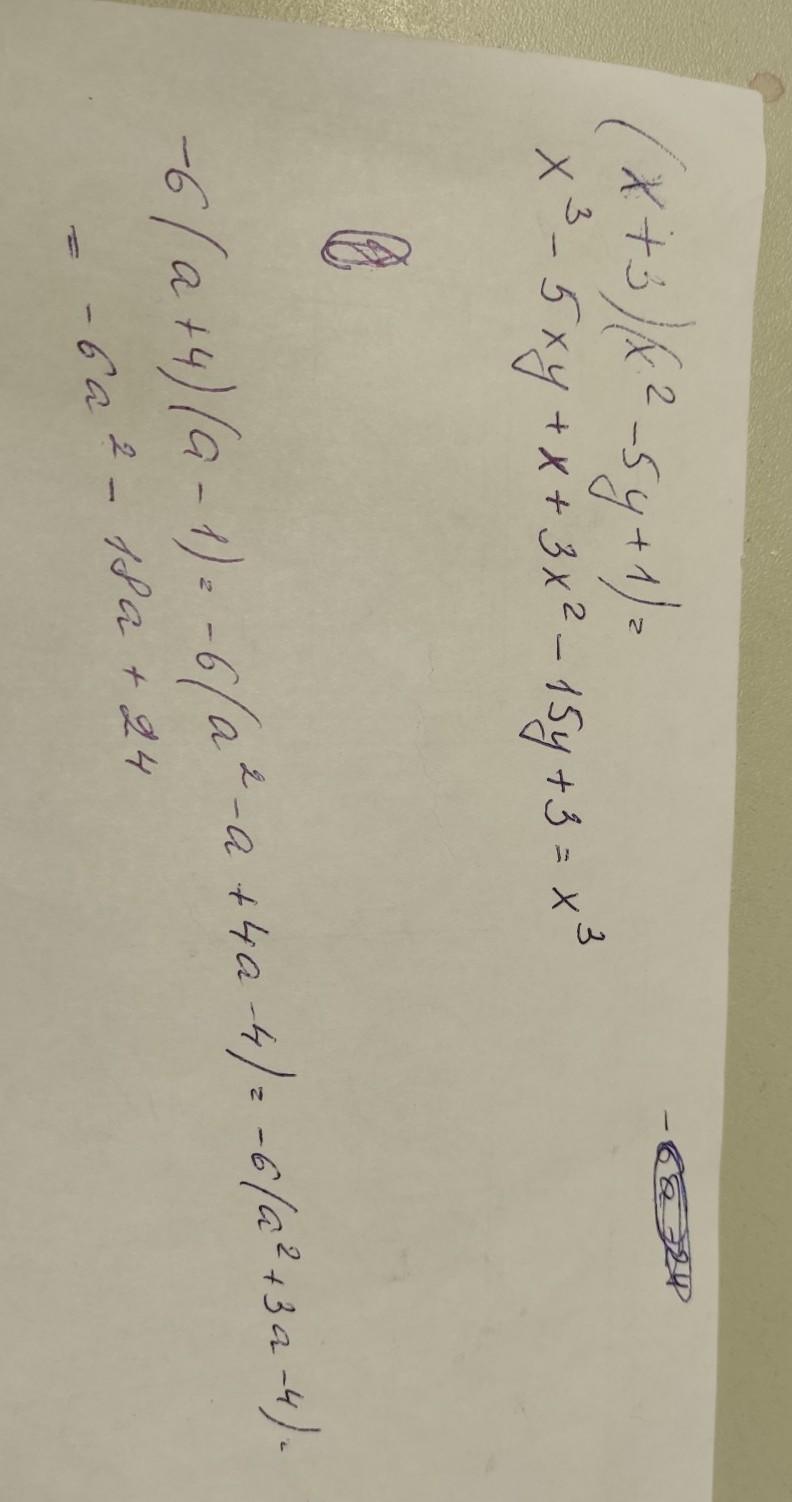 (x+3)(x²-5y+1)=
x³-5xy+x+3x²-15y+3=x³
-6(a+4)(a-1)=-6(a²-a+4a-4)=-6(a²+3a-4)=
=-6a²-18a+24